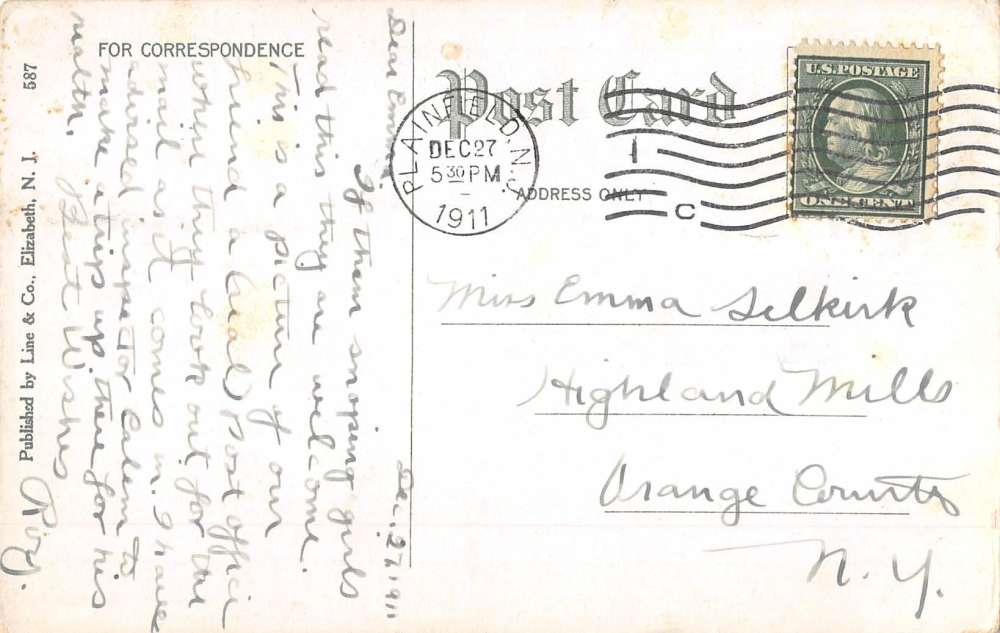 FOR CORRESPONDENCE
Post Card
ADDRESS ONLY
PLAINFIELD, N.J.
DEC 27
5 30 PM
1911
1
C
U.S. POSTAGE
ONE CENT
Miss Emma Selkirk
Highland Mills
Orange County
N. Y.
Dec. 27 1911
Dear Emma:
If them snooping girls
read this they are welcome.
This is a picture of our
friend a real Post office
when they look out for the
mail as it comes in. I have
advised inspector to
make a trip up there for his
health.
Best Wishes
587
Published by Line & Co., Elizabeth, N. J.